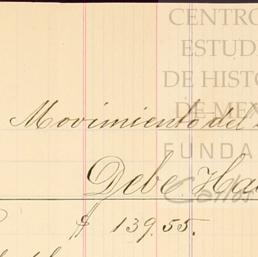 CENTRO
ESTUD
DE HISTO
DE MÉX
FUNDA
Carlos
Movimiento del
Debe. Ha
$ 139.55.